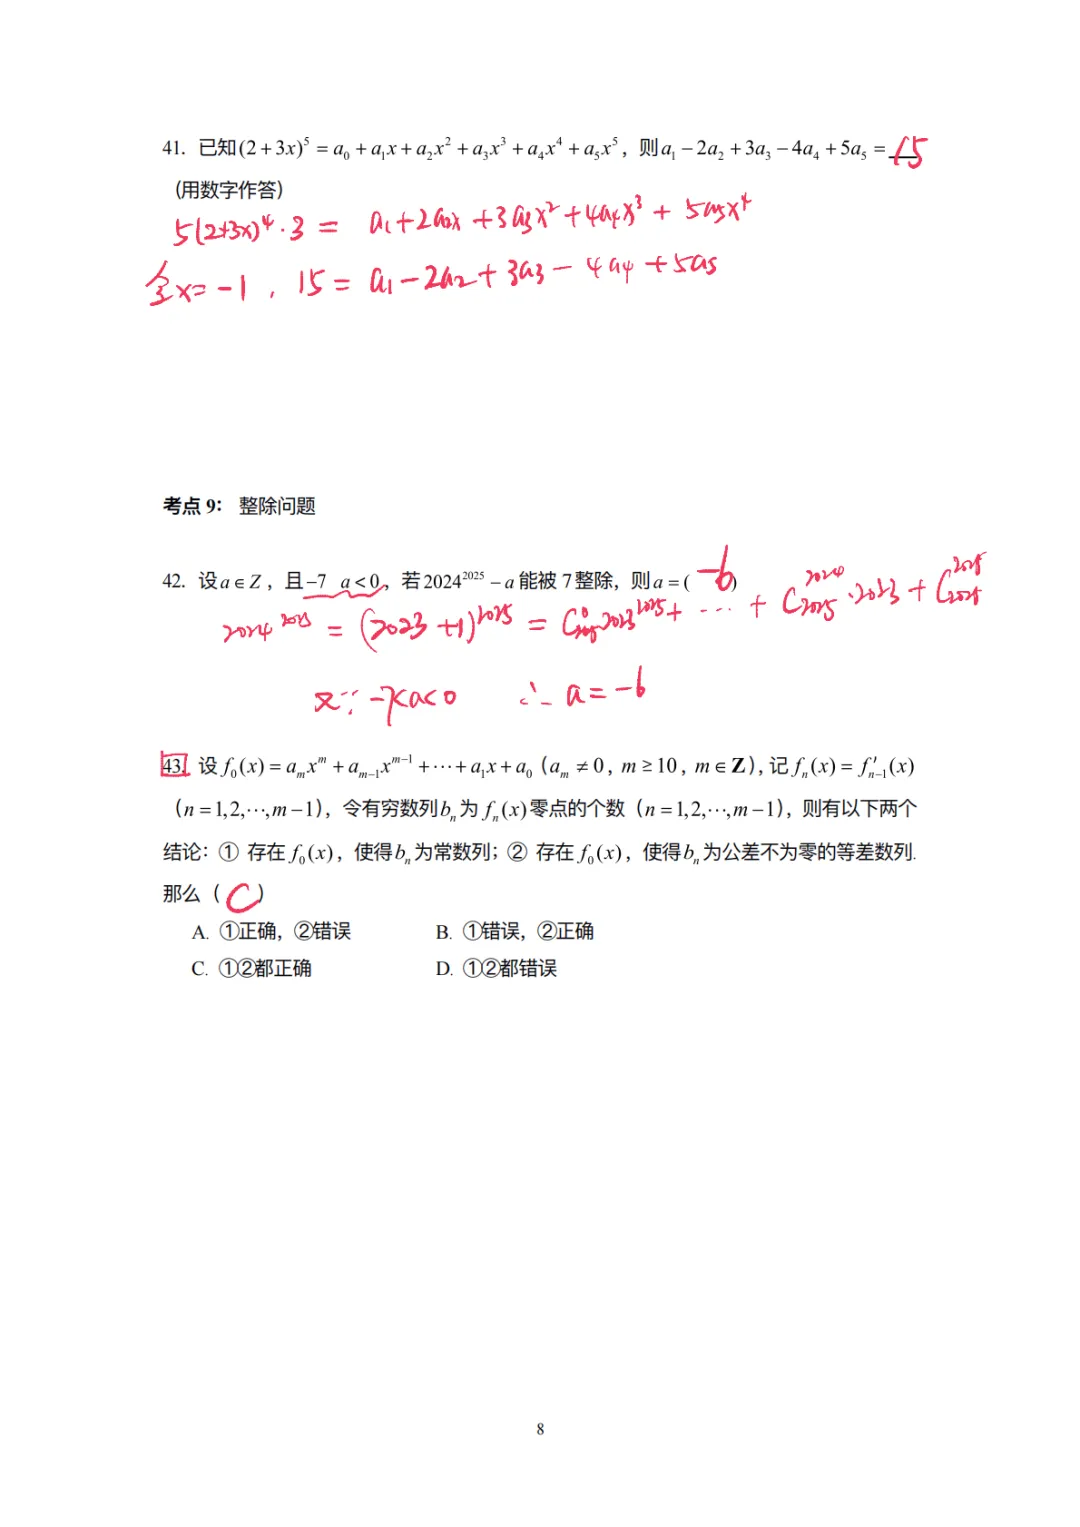 41. 已知(2+3x)⁵ = a₀ + a₁x + a₂x² + a₃x³ + a₄x⁴ + a₅x⁵，则a₁ − 2a₂ + 3a₃ − 4a₄ + 5a₅ = 15
（用数字作答）
5(2+3x)⁴·3 = a₁+2a₂x+3a₃x²+4a₄x³+5a₅x⁴
令x=-1，15=a₁-2a₂+3a₃-4a₄+5a₅
考点 9： 整除问题
42. 设a∈Z，且−7 a<0，若2024²⁰²⁵ − a能被7整除，则a=( -6 )
2024²⁰²⁵ = (2023+1)²⁰²⁵ = C₂₀₂₅⁰2023²⁰²⁵+ ··· + C₂₀₂₅²⁰²⁴·2023 + C₂₀₂₅²⁰²⁵
又∵ -7<a<0 ∴ a=-6
43. 设 f₀(x) = aₘxᵐ + aₘ₋₁xᵐ⁻¹ + ⋯ + a₁x + a₀（aₘ ≠ 0，m ≥ 10，m∈Z），记 fₙ(x) = f′ₙ₋₁(x)
（n=1,2,⋯,m−1），令有穷数列bₙ为 fₙ(x)零点的个数（n=1,2,⋯,m−1），则有以下两个
结论：① 存在 f₀(x)，使得bₙ为常数列；② 存在 f₀(x)，使得bₙ为公差不为零的等差数列.
那么（ C ）
A. ①正确，②错误 B. ①错误，②正确
C. ①②都正确 D. ①②都错误
8